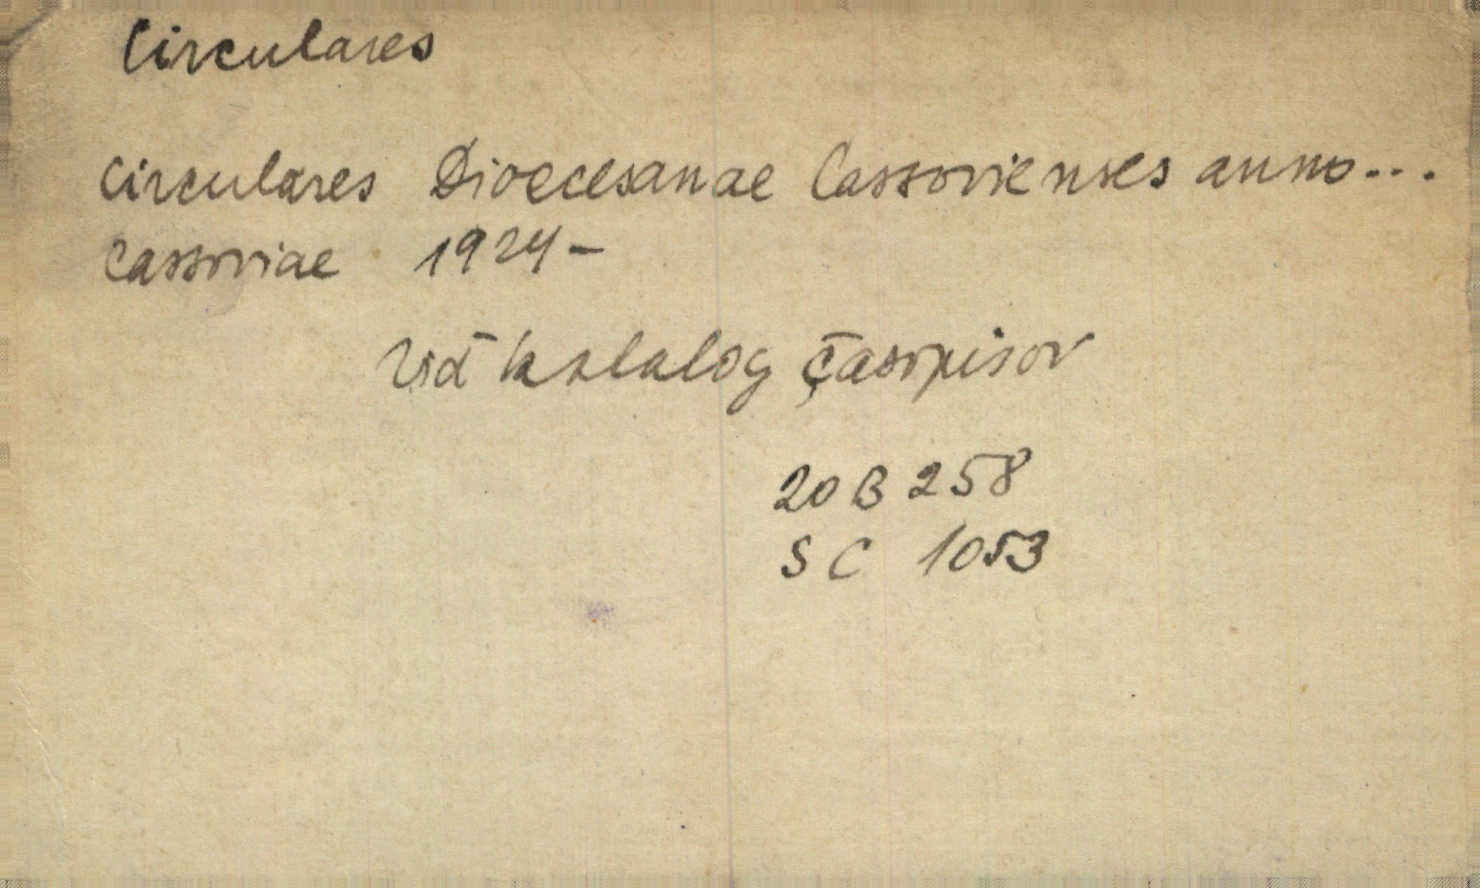 Circulares
Circulares Dioecesanae Cassovienses anno...
Cassoviae 1924-
Viď katalog časopisov
20 B 258
S C 1053